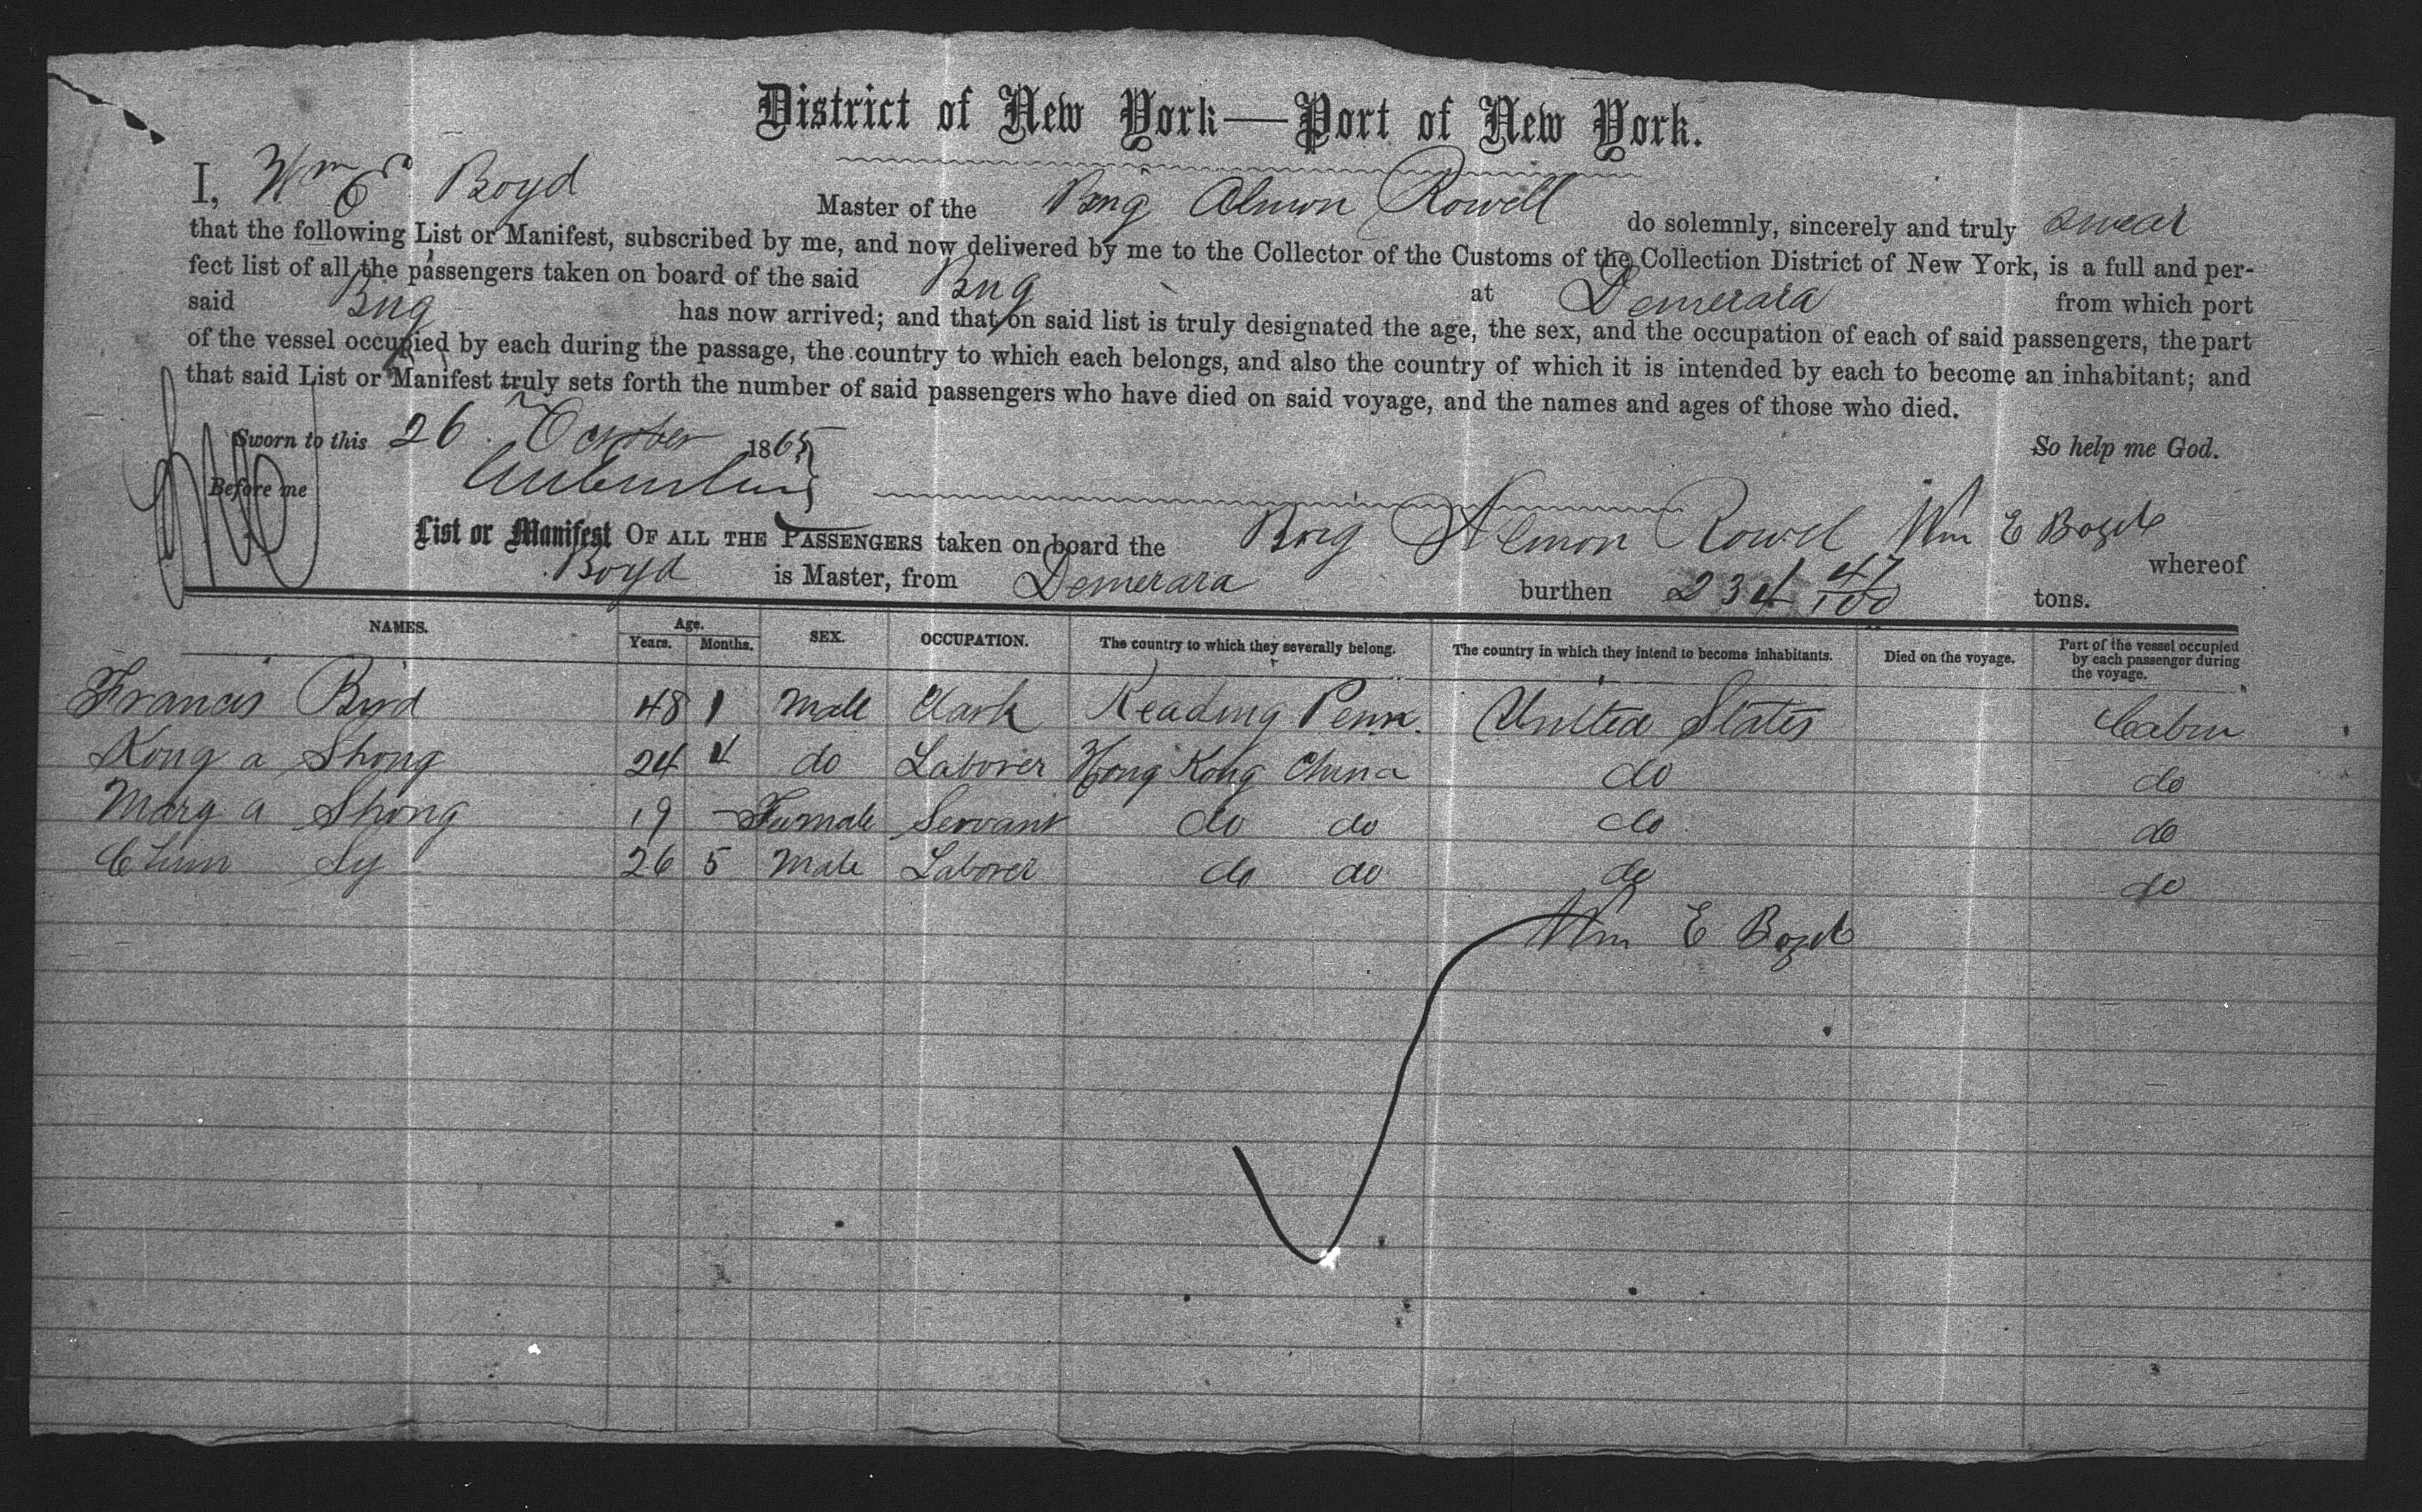 District of New York—Port of New York.
I, Wm E Boyd Master of the Brig Almon Rowell do solemnly, sincerely and truly swear
that the following List or Manifest, subscribed by me, and now delivered by me to the Collector of the Customs of the Collection District of New York, is a full and per-
fect list of all the passengers taken on board of the said Brig at Demerara from which port
said Brig has now arrived; and that on said list is truly designated the age, the sex, and the occupation of each of said passengers, the part
of the vessel occupied by each during the passage, the country to which each belongs, and also the country of which it is intended by each to become an inhabitant; and
that said List or Manifest truly sets forth the number of said passengers who have died on said voyage, and the names and ages of those who died.
Sworn to this 26 October 1865 So help me God.
Before me
Wm E Boyd
List or Manifest OF ALL THE PASSENGERS taken on board the Brig Almon Rowel whereof
Boyd is Master, from Demerara burthen 234 47/100 tons.
NAMES. Age. Years. Months. SEX. OCCUPATION. The country to which they severally belong. The country in which they intend to become inhabitants. Died on the voyage. Part of the vessel occupied by each passenger during the voyage.
Francis Byrd 48 1 Male Clark Reading Penn. United States Cabin
Kong a Shong 24 4 do Laborer Hong Kong China do do
Marg a Shong 19 - Female Servant do do do do
Chun Sy 26 5 Male Laborer do do do do
Wm E Boyd